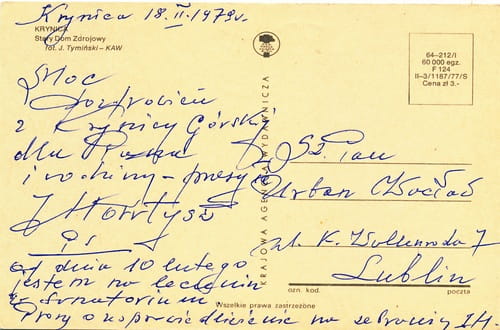 Krynica 18.II.1979r.
KRYNICA
Stary Dom Zdrojowy
fot. J. Tymiński - KAW
Moc
pozdrowień
z Krynicy Górskiej
dla Pana
i rodziny - przesyła
J Hortysz
PS
od dnia 10 lutego
jestem na leczeniu
w Sanatorium
Proszę o usprawiedliwienie na zebraniu JH
KRAJOWA AGENCJA WYDAWNICZA
64-212/I
60 000 egz.
F 124
II-3/1187/77/S
Cena zł 3.-
Sz. Pan
Urban Wacław
ul. K. Wallenroda 7
Lublin
ozn. kod. poczta
Wszelkie prawa zastrzeżone